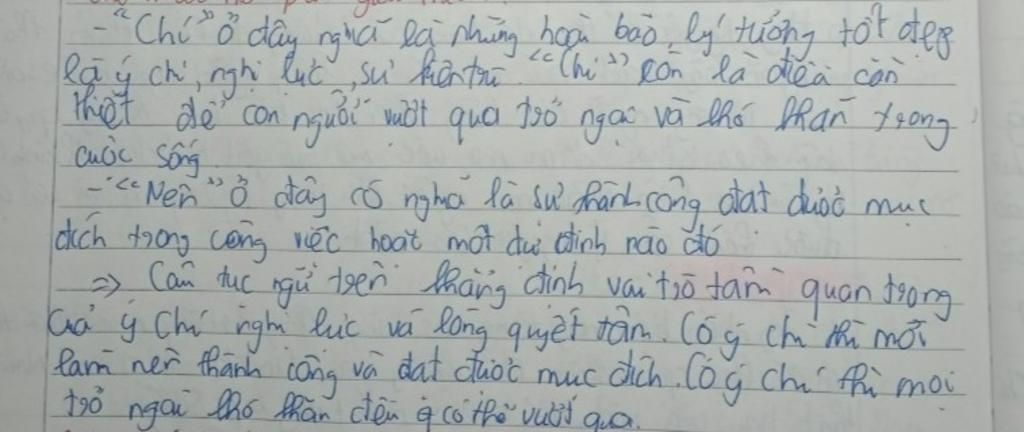 - "Chí" ở đây nghĩ là những hoài bão, lý tưởng tốt đẹp
là ý chí, nghị lực, sự kiên trì. "Chí" còn là điều cần
thiết để con người vượt qua trở ngại và khó khăn trong
cuộc sống.
- "Nên" ở đây có nghĩa là sự thành công đạt được mục
đích trong công việc hoạt một dự định nào đó
⇒ Câu tục ngữ trên khẳng định vai trò tầm quan trọng
của ý chí nghị lực và lòng quyết tâm. Có ý chí thì mới
làm nên thành công và đạt được mục đích. Có ý chí thì mọi
trở ngại khó khăn đều có thể vượt qua.